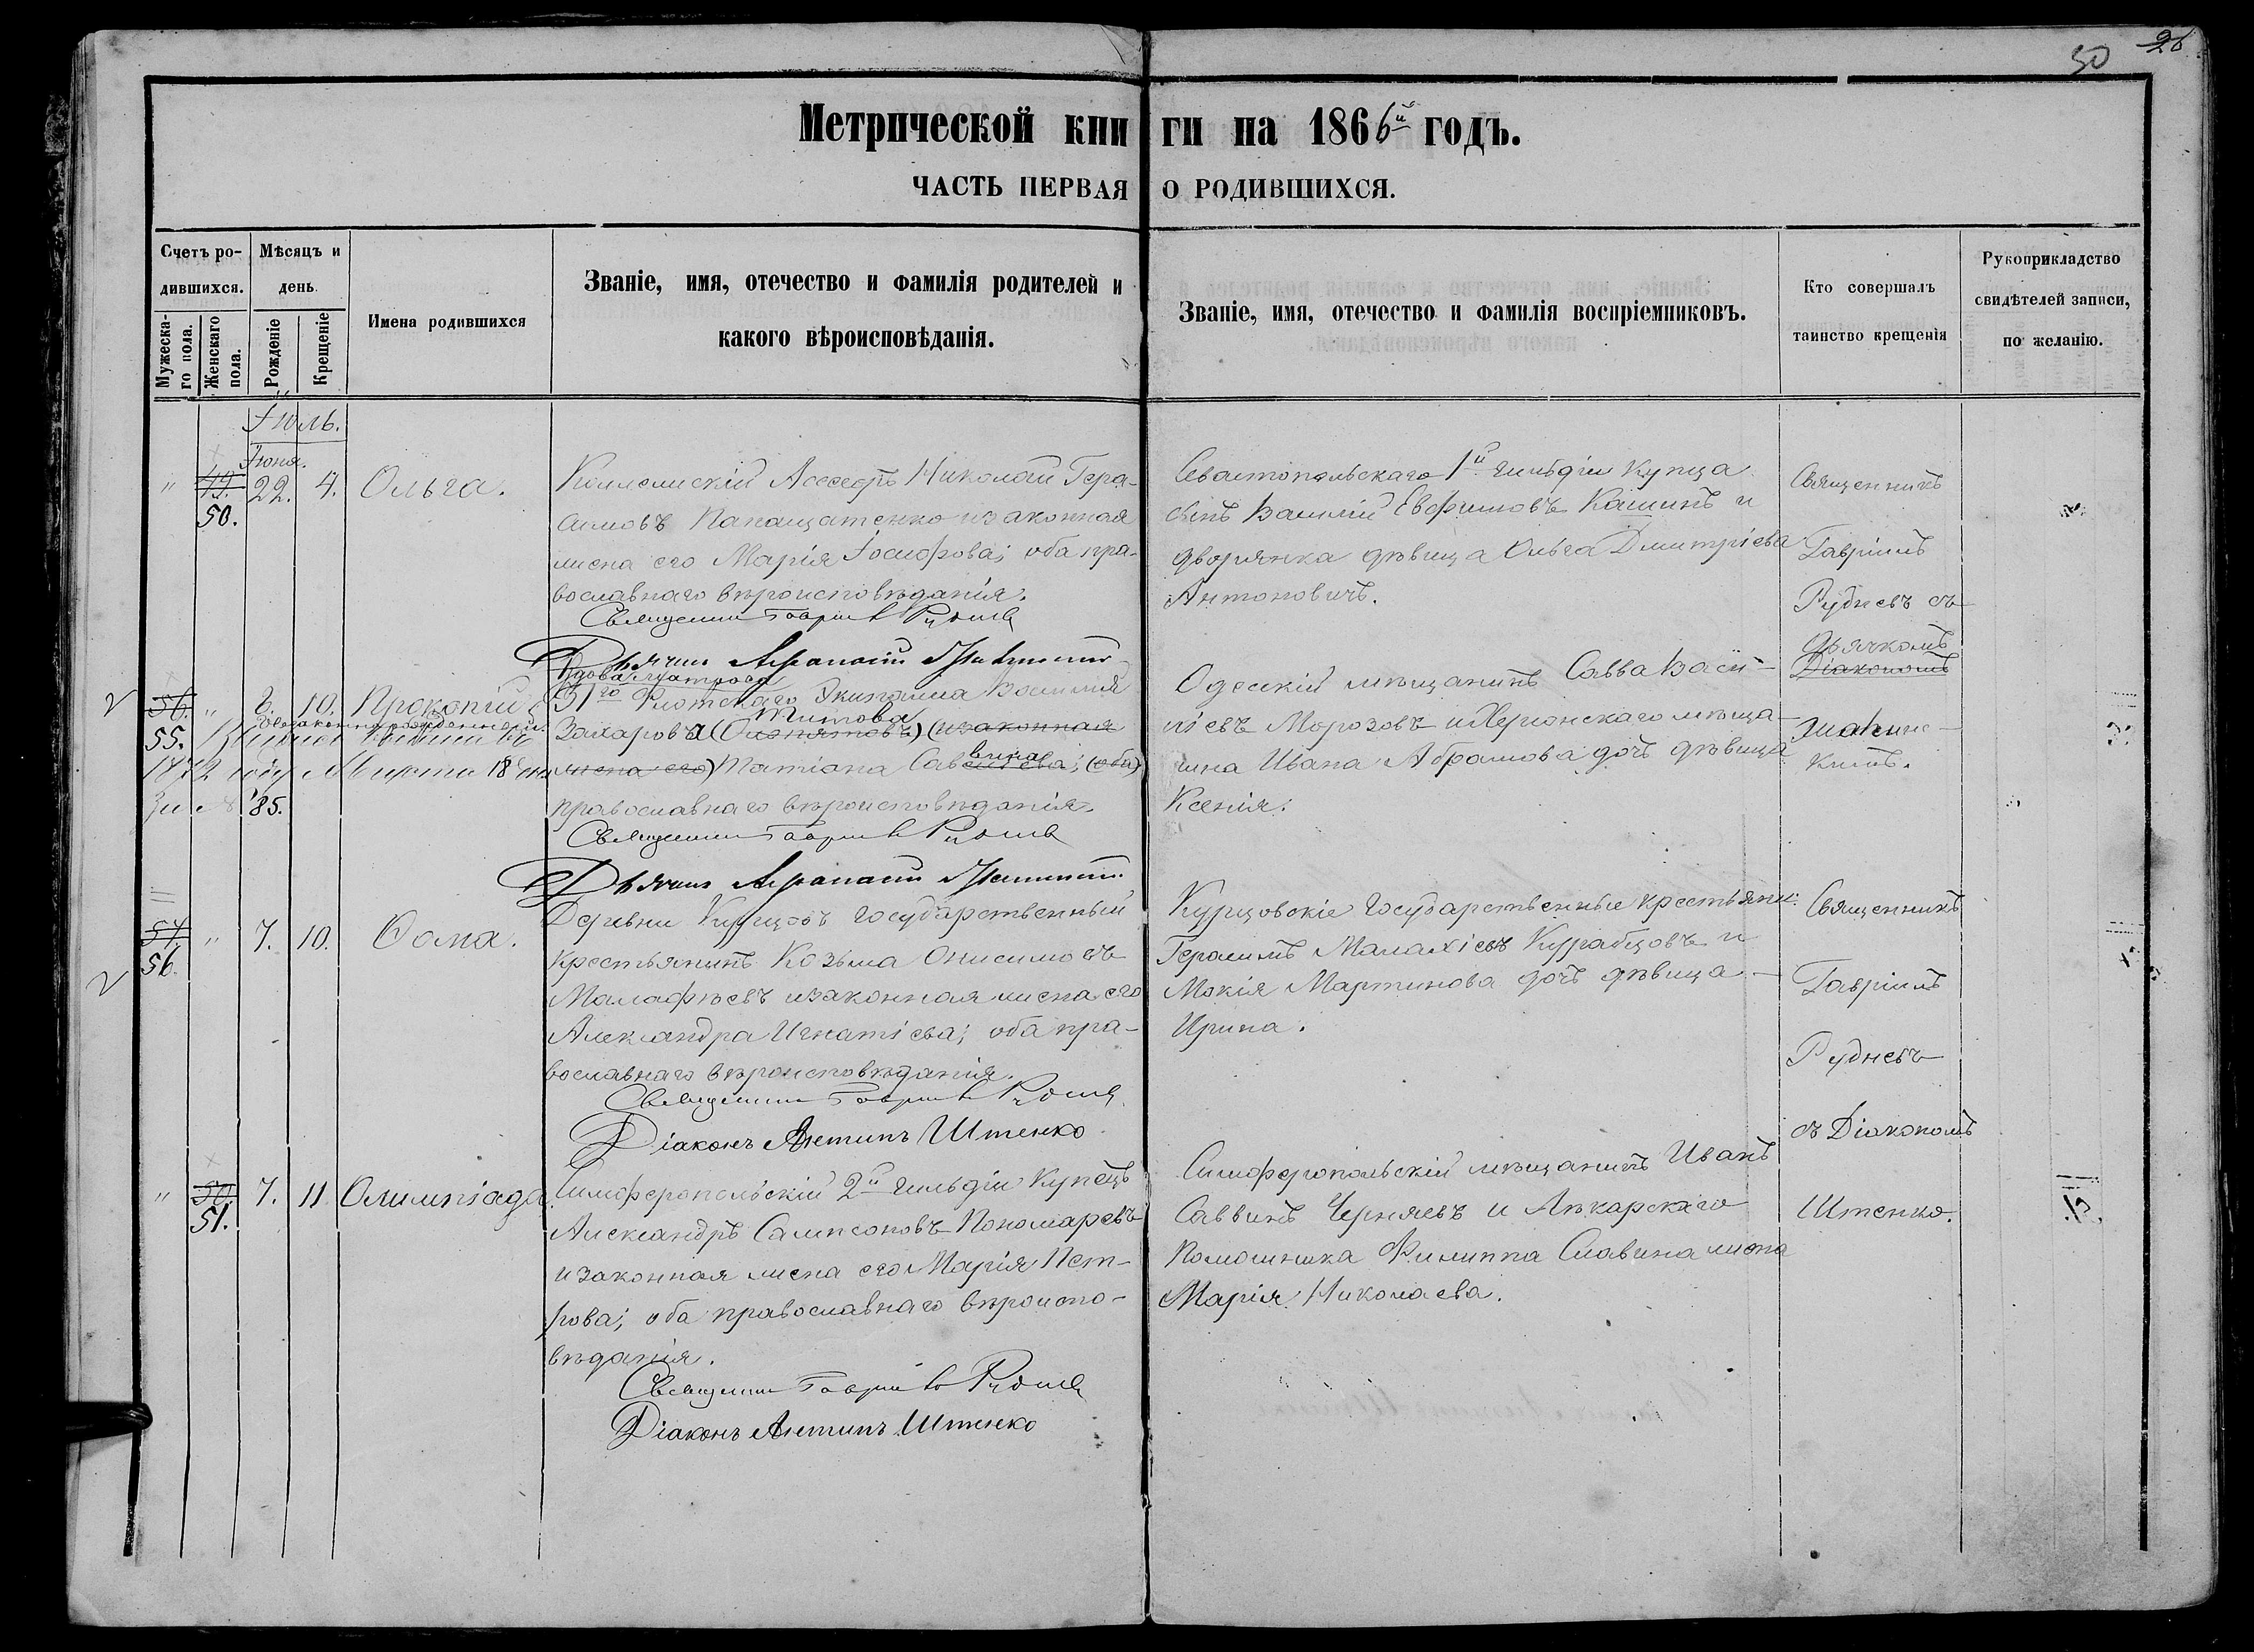 50 26
Метрической кни ги на 1866й годъ.
ЧАСТЬ ПЕРВАЯ О РОДИВШИХСЯ.
Счетъ ро-
дившихся.
Мужеска-
го пола.
Женскаго
пола.
Мѣсяцъ и
день.
Рожденіе
Крещеніе
Имена родившихся
Званіе, имя, отечество и фамилія родителей и
какого вѣроисповѣданія.
Званіе, имя, отечество и фамилія воспріемниковъ.
Кто совершалъ
таинство крещенія
Рукоприкладство
свидѣтелей записи,
по желанію.
Іюль.
Іюня.
" 49. 22. 4. Ольга.
50.
Коллежскій Ассесоръ Николай Гера-
симовъ Папащатенко и законная
жена его Марія Іосифова; оба пра-
вославнаго вѣроисповѣданія.
Священникъ Гавріилъ Рудневъ
Дьячекъ Афанасій
Севастопольскаго 1й гильдіи Купца
сынъ Василій Евфимовъ Кашинъ и
дворянка дѣвица Ольга Дмитріева
Антоновичъ.
Священникъ
Гавріилъ
Рудневъ съ
дьячкомъ
Діакономъ
56. " 6. 10. Прокопій
незаконнорожденный.
55.
1872 году Марта 18 дня
за № 85.
Вдова матроса
31го Флотскаго Экипажа Василія
Титова
Захарова (Олопятовъ) (и законная
жена его) Татіана Савельева; (оба)
православнаго вѣроисповѣданія.
Священникъ Гавріилъ Рудневъ
Дьячекъ Афанасій
Одесскій мѣщанинъ Савва Васи-
ліевъ Морозовъ и Херсонскаго мѣща-
нина Ивана Абрамова дочь дѣвица
Ксенія.
57. " 7. 10. Ѳома.
56.
Деревни Курцовъ государственный
крестьянинъ Козьма Онисимовъ
Малафѣевъ и законная жена его
Александра Игнатіева; оба пра-
вославнаго вѣроисповѣданія.
Священникъ Гавріилъ Рудневъ
Діаконъ Антипъ Штенко
Курцовскіе государственные крестьяни:
Герасимъ Малахіевъ Курабцовъ и
Мокія Мартинова дочь дѣвица
Ирина.
Священникъ
Гавріилъ
Рудневъ
съ Діакономъ
Штенко.
" 50. 7. 11. Олимпіада.
51.
Симферопольскій 2й гильдіи Купецъ
Александръ Сампсоновъ Пономаревъ
и законная жена его Марія Пет-
рова; оба православнаго вѣроиспо-
вѣданія.
Священникъ Гавріилъ Рудневъ
Діаконъ Антипъ Штенко
Симферопольскій мѣщанинъ Иванъ
Саввинъ Черняевъ и Лѣкарскаго
Помошника Филиппа Славина жена
Марія Николаева.